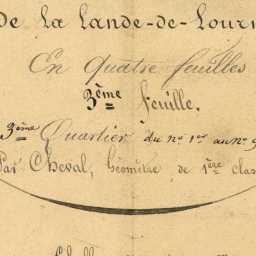 de La Lande-de-Lour
En Quatre feuilles
3ème feuille.
3ème Quartier du no 1er au no 9
Par Cheval, Géomètre de 1ère clas
Echelle